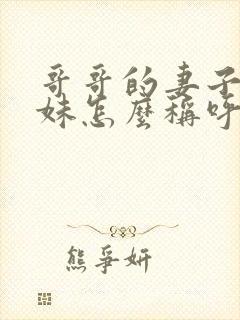 哥哥的妻子
妹怎麼稱呼
熊爭妍